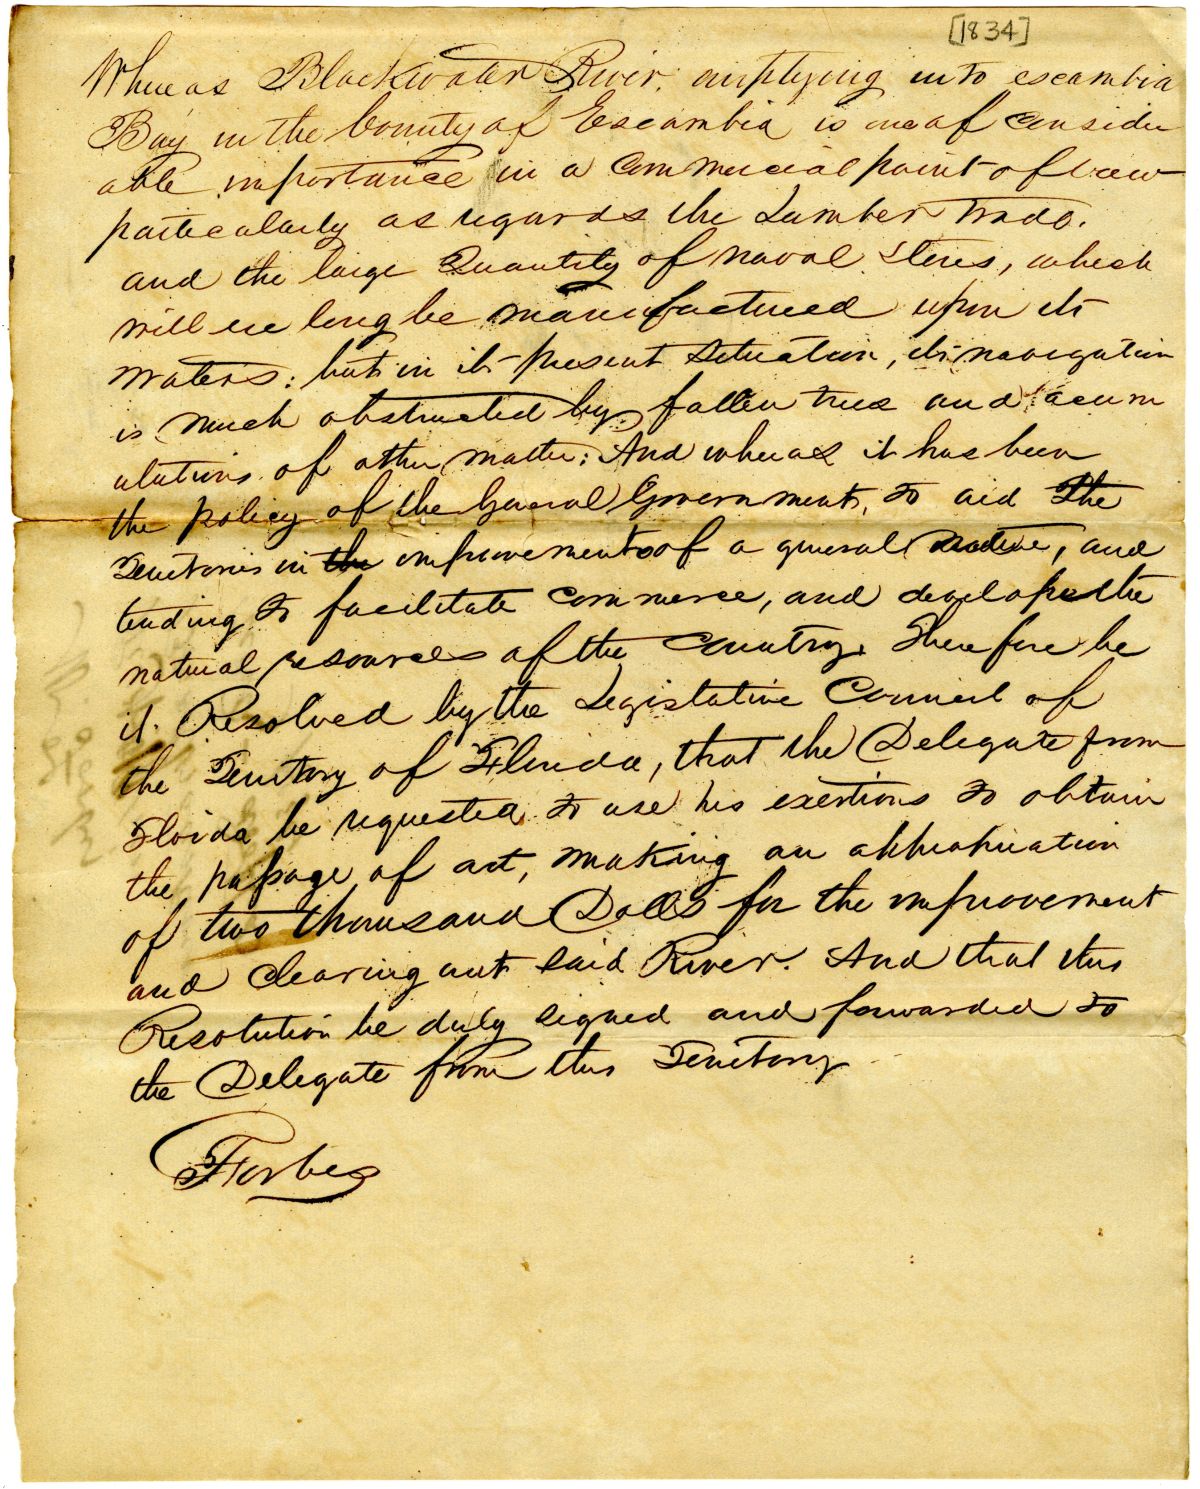 [1834]
Whereas Blackwater River, emptying into escambia
Bay in the County of Escambia is one of consider
able importance in a commercial point of view
particularly as regards the Lumber trade.
and the large Quantity of naval Stores, which
will ere long be manufactured upon its
waters: but in its present situation, its navigation
is much obstructed by fallen trees and acum
ulations of other matter; And whereas it has been
the policy of the General Government, to aid the
Territories in the improvements of a general nature, and
tending to facilitate commerce, and develope the
natural resources of the country. Therefore be
it Resolved by the Legislative Council of
the Territory of Florida, that the Delegate from
Floida be requested to use his exertions to obtain
the passage of act, making an appropriation
of two thousand Dolls for the improvement
and clearing out said River. And that this
Resolution be duly signed and forwarded to
the Delegate from this Territory
Forbes